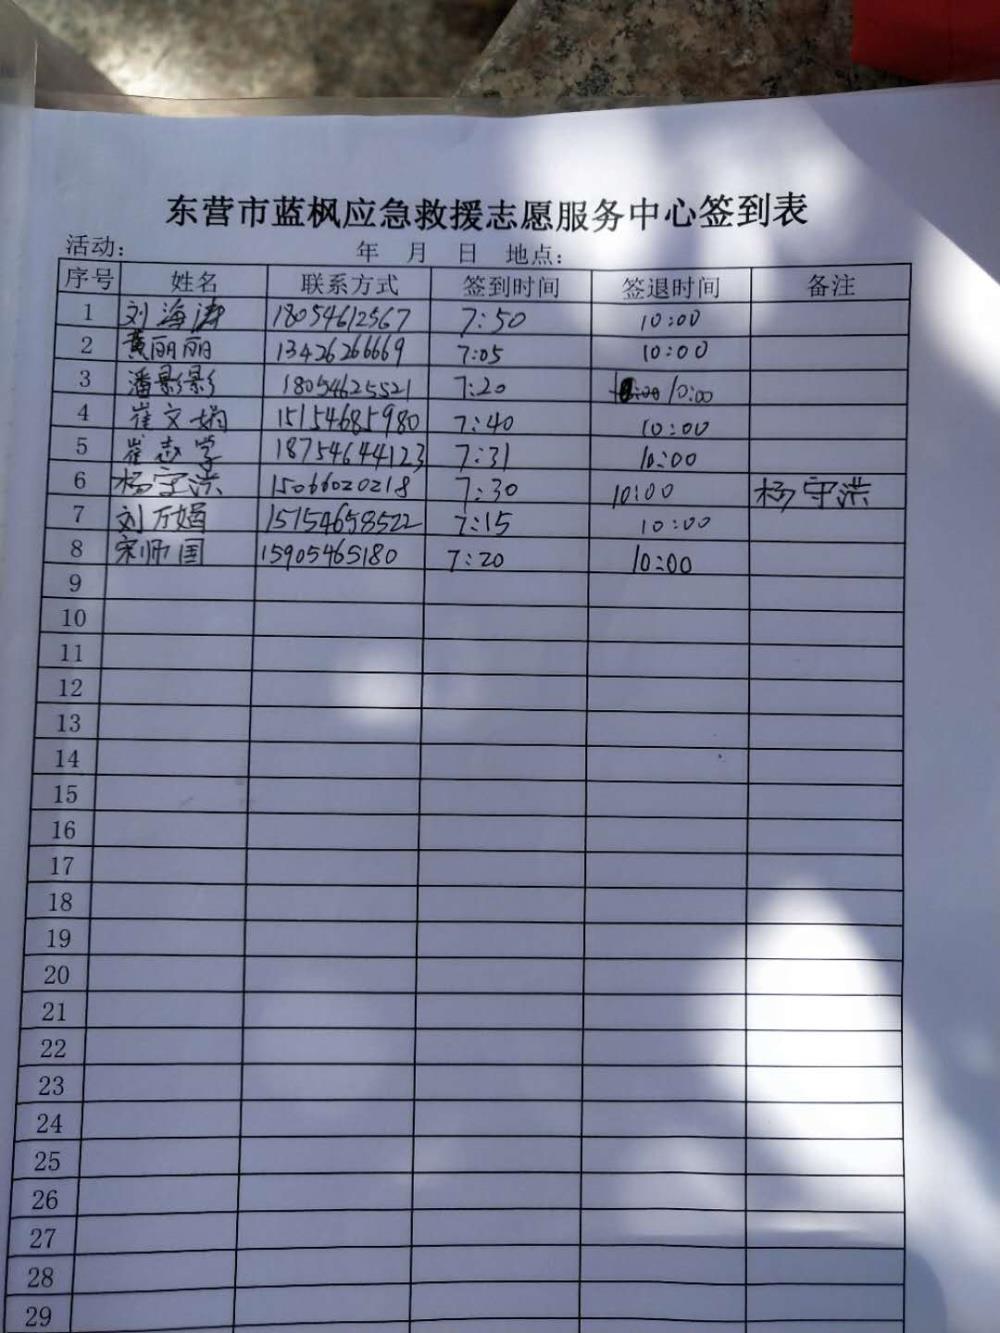 东营市蓝枫应急救援志愿服务中心签到表
活动: 年 月 日 地点:
序号 姓名 联系方式 签到时间 签退时间 备注
1 刘海涛 18054612567 7:50 10:00
2 黄丽丽 13426266669 7:05 10:00
3 潘影影 18054625521 7:20 10:00
4 崔文娟 15154685980 7:40 10:00
5 崔志学 18754644123 7:31 10:00
6 杨守洪 15066020218 7:30 10:00 杨守洪
7 刘万娟 15154658522 7:15 10:00
8 宋师国 15905465180 7:20 10:00
9
10
11
12
13
14
15
16
17
18
19
20
21
22
23
24
25
26
27
28
29